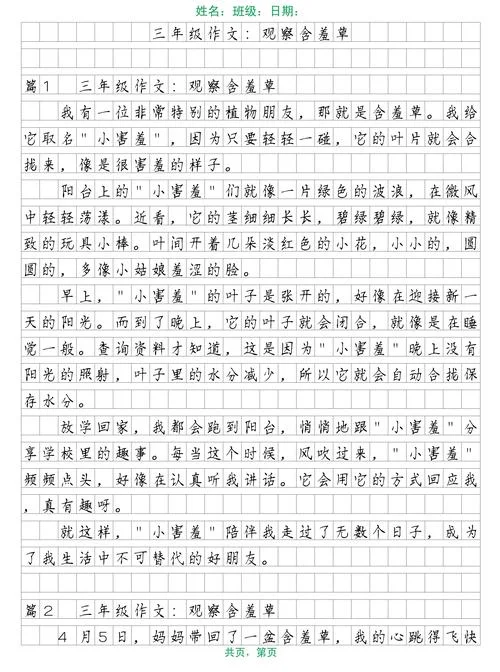 姓名：班级：日期：
三年级作文：观察含羞草
篇1 三年级作文：观察含羞草
我有一位非常特别的植物朋友，那就是含羞草。我给
它取名"小害羞"，因为只要轻轻一碰，它的叶片就会合
拢来，像是很害羞的样子。
阳台上的"小害羞"们就像一片绿色的波浪，在微风
中轻轻荡漾。近看，它的茎细细长长，碧绿碧绿，就像精
致的玩具小棒。叶间开着几朵淡红色的小花，小小的，圆
圆的，多像小姑娘羞涩的脸。
早上，"小害羞"的叶子是张开的，好像在迎接新一
天的阳光。而到了晚上，它的叶子就会闭合，就像是在睡
觉一般。查询资料才知道，这是因为"小害羞"晚上没有
阳光的照射，叶子里的水分减少，所以它就会自动合拢保
存水分。
放学回家，我都会跑到阳台，悄悄地跟"小害羞"分
享学校里的趣事。每当这个时候，风吹过来，"小害羞"
频频点头，好像在认真听我讲话。它会用它的方式回应我
，真有趣呀。
就这样，"小害羞"陪伴我走过了无数个日子，成为
了我生活中不可替代的好朋友。
篇2 三年级作文：观察含羞草
4月5日，妈妈带回了一盆含羞草，我的心跳得飞快
共页，第页